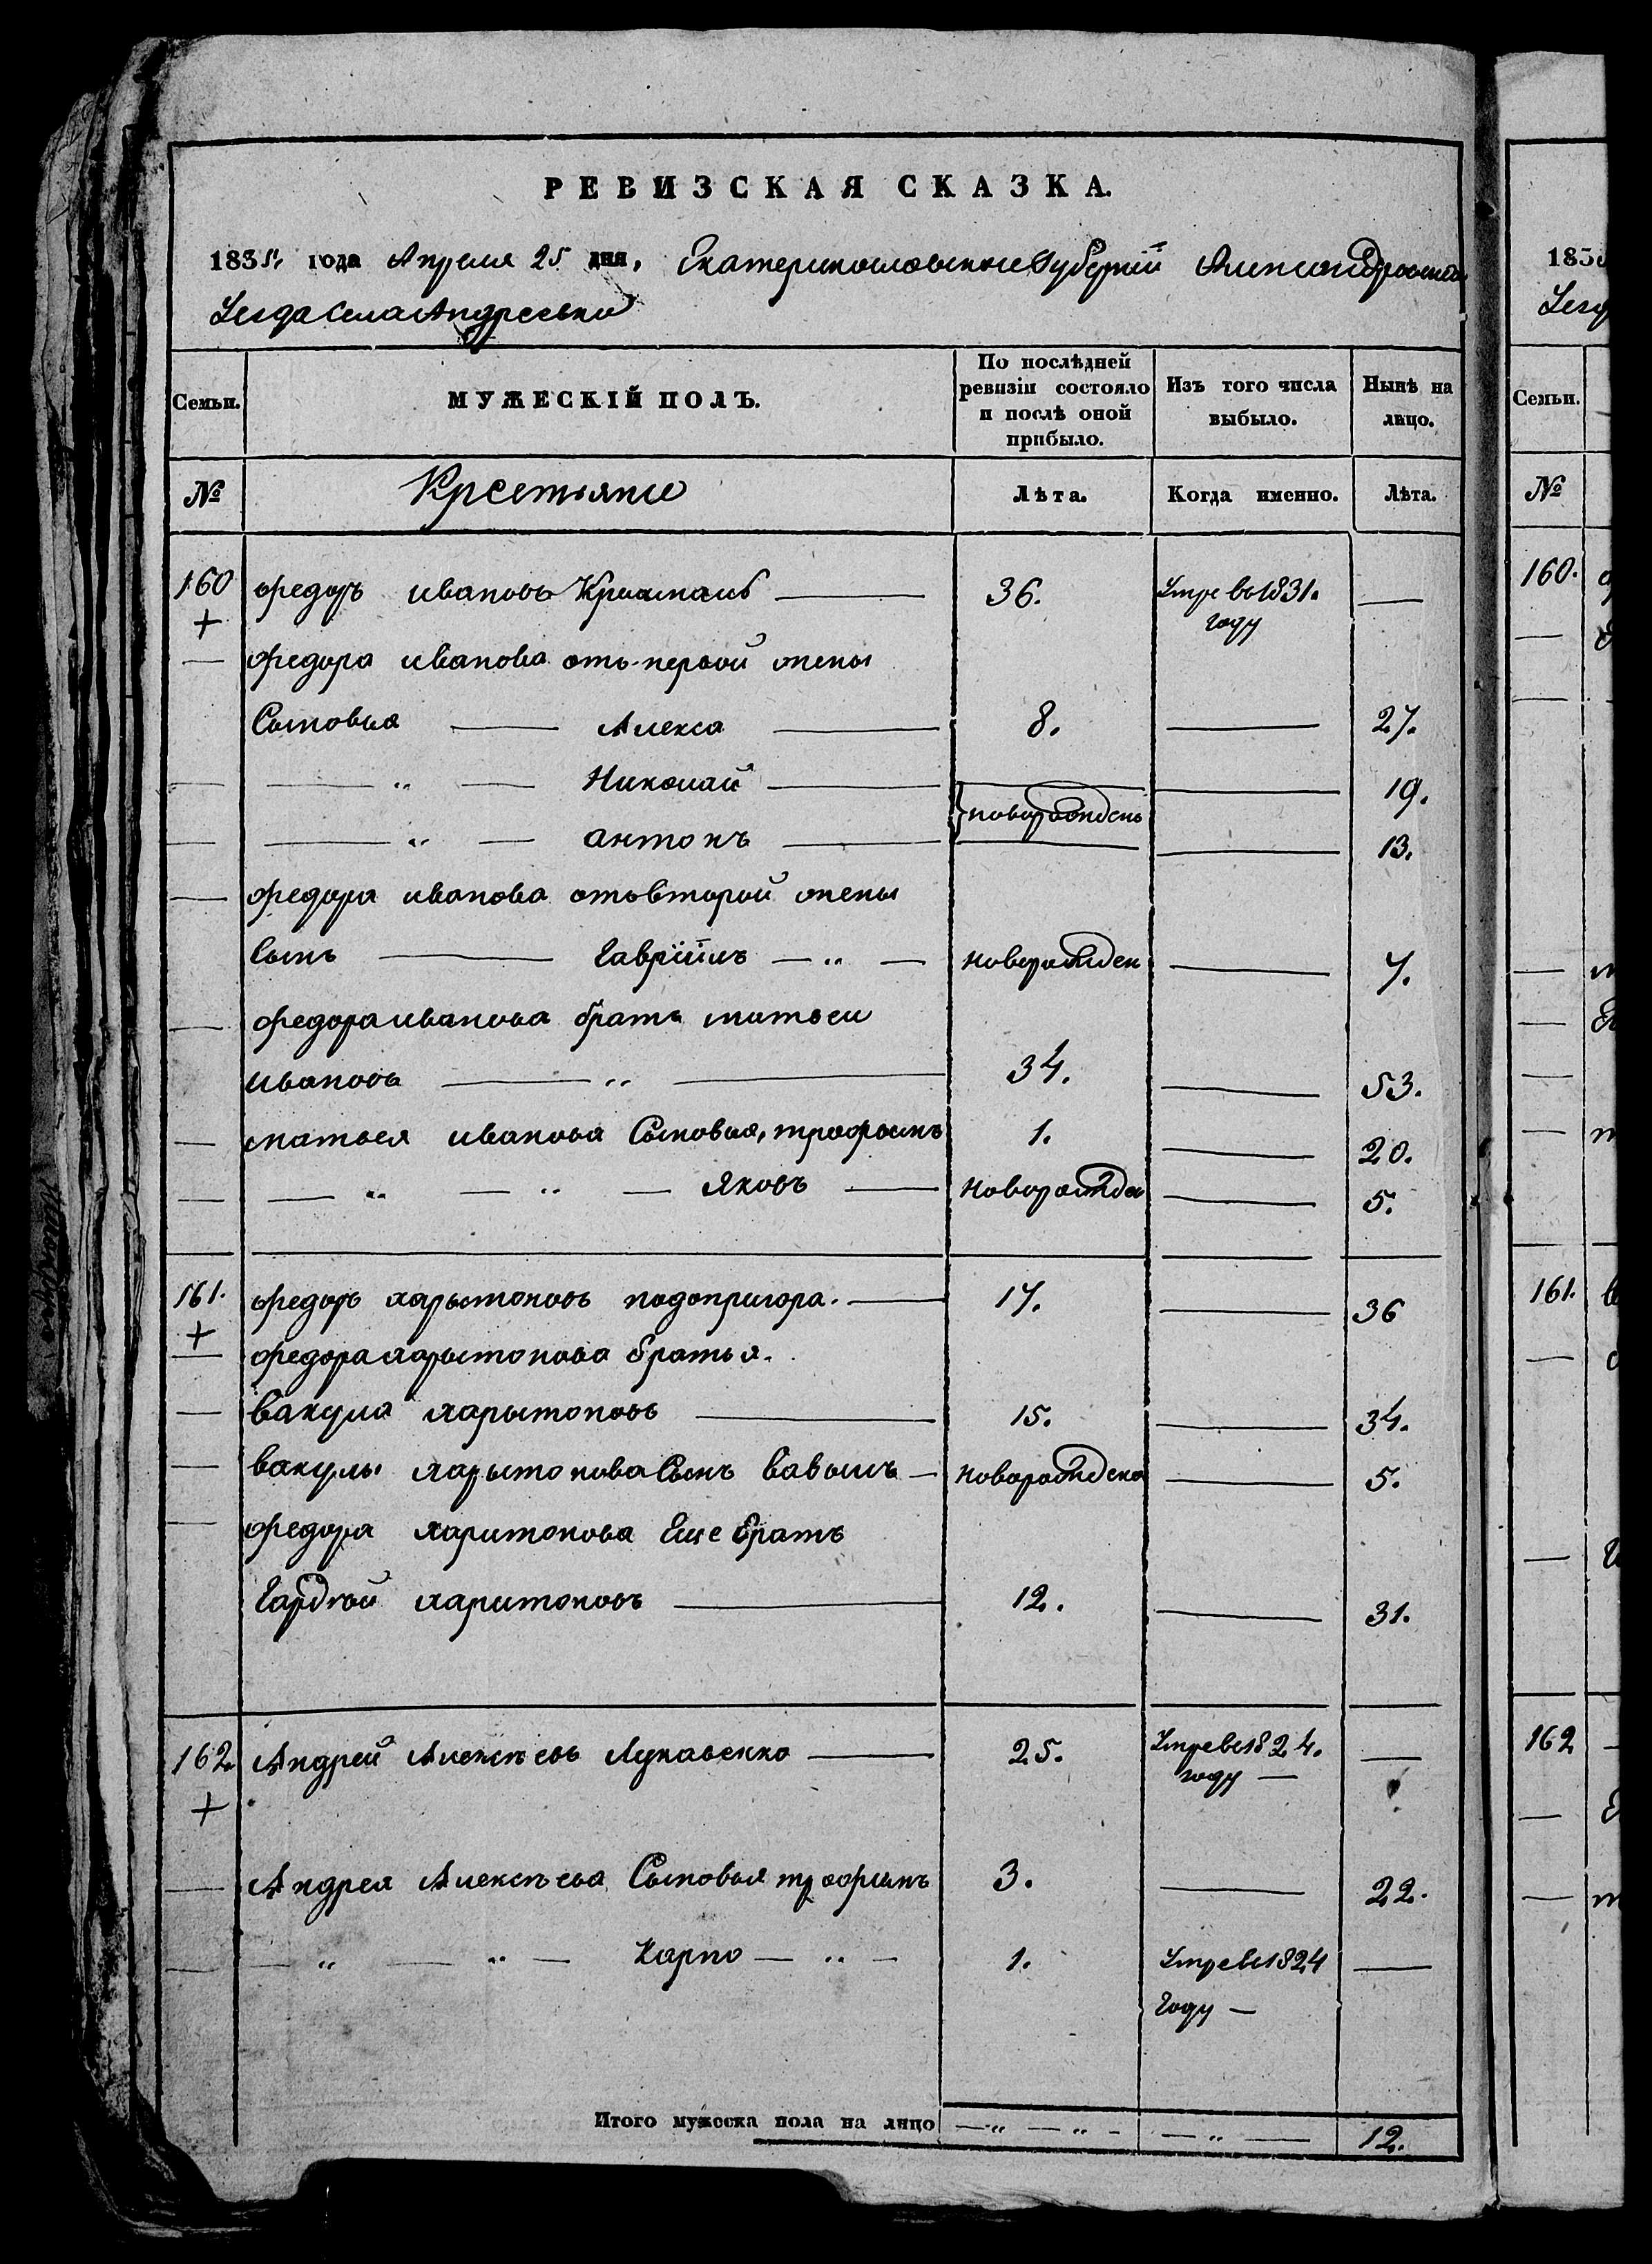 РЕВИЗСКАЯ СКАЗКА.
1835 года Апреля 25 дня, Екатеринославской Губерніи Александровскаго
Уезда Села Андреевки
Семьи. МУЖЕСКІЙ ПОЛЪ. По послѣдней ревизіи состояло и послѣ оной прибыло. Изъ того числа выбыло. Нынѣ на лицо.
№ Крестьяне Лѣта. Когда именно. Лѣта.
160 федоръ ивановъ 36. Умре въ 1831. году —
— федора иванова отъ первой жены
Сыновья — Алекса — 8. — 27.
— — „ — Николай — новорожденъ — 19.
— — „ — антонъ — — 13.
— федора иванова отъ второй жены
Сынъ — Гавріилъ — „ — новорожден — 7.
— федора иванова братъ матвеи
ивановъ — „ — 34. — 53.
— матвея иванова Сыновья, трофымъ 1. — 20.
— — „ — „ — Яковъ — новорожден — 5.
161. федоръ харытоновъ подопригора. — 17. — 36
+
— федора харытонова братья.
— вакула харытоновъ — 15. — 34.
— вакулы харытонова Сынъ вавылъ — новорожденъ — 5.
— федора харитонова Еще братъ
Гордѣй харитоновъ — 12. — 31.
162. Андрей Алексѣевъ Лукавенко — 25. Умре въ 1824. году — —
+
— Андрея Алексѣева Сыновья трофимъ 3. — 22.
— — „ — „ — Карпо — „ — 1. Умре въ 1824 —
Году —
Итого мужеска пола на лицо — „ — „ — — „ — 12.
183
Уез
Семьи.
№
160.
161.
162